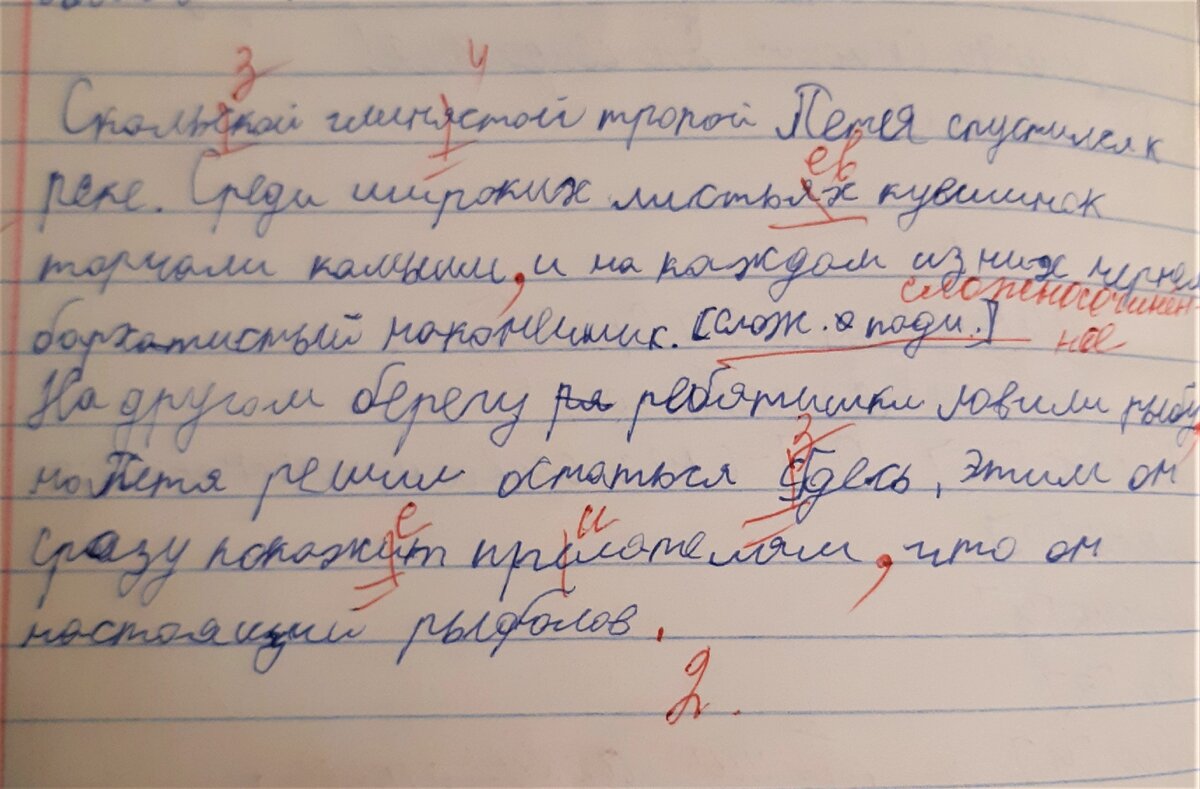 з ч
Скальской глинястой тропой Петя спустился к
ев
реке. Среди широких листьях кувшинок
торчали камыши, и на каждом из них чернел
сложносочинен
бархатистый наконешник. [слож. а поди.] ное
На другом берегу ря ребятишки ловили рыбу,
з
но Петя решил остаться сдесь, этим он
е и
сразу покажит прелателям, что он
настоящий рыболов.
2.